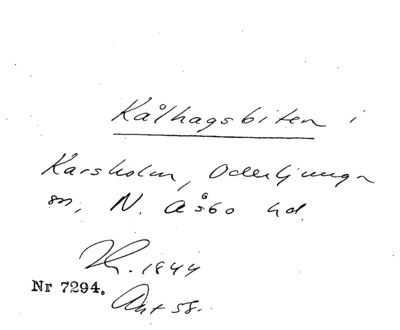 Kålhagsbiten i
Karsholm, Oderljunga
sn, N. Åsbo hd.
Kr. 1844
Nr 7294.
Ant 58.